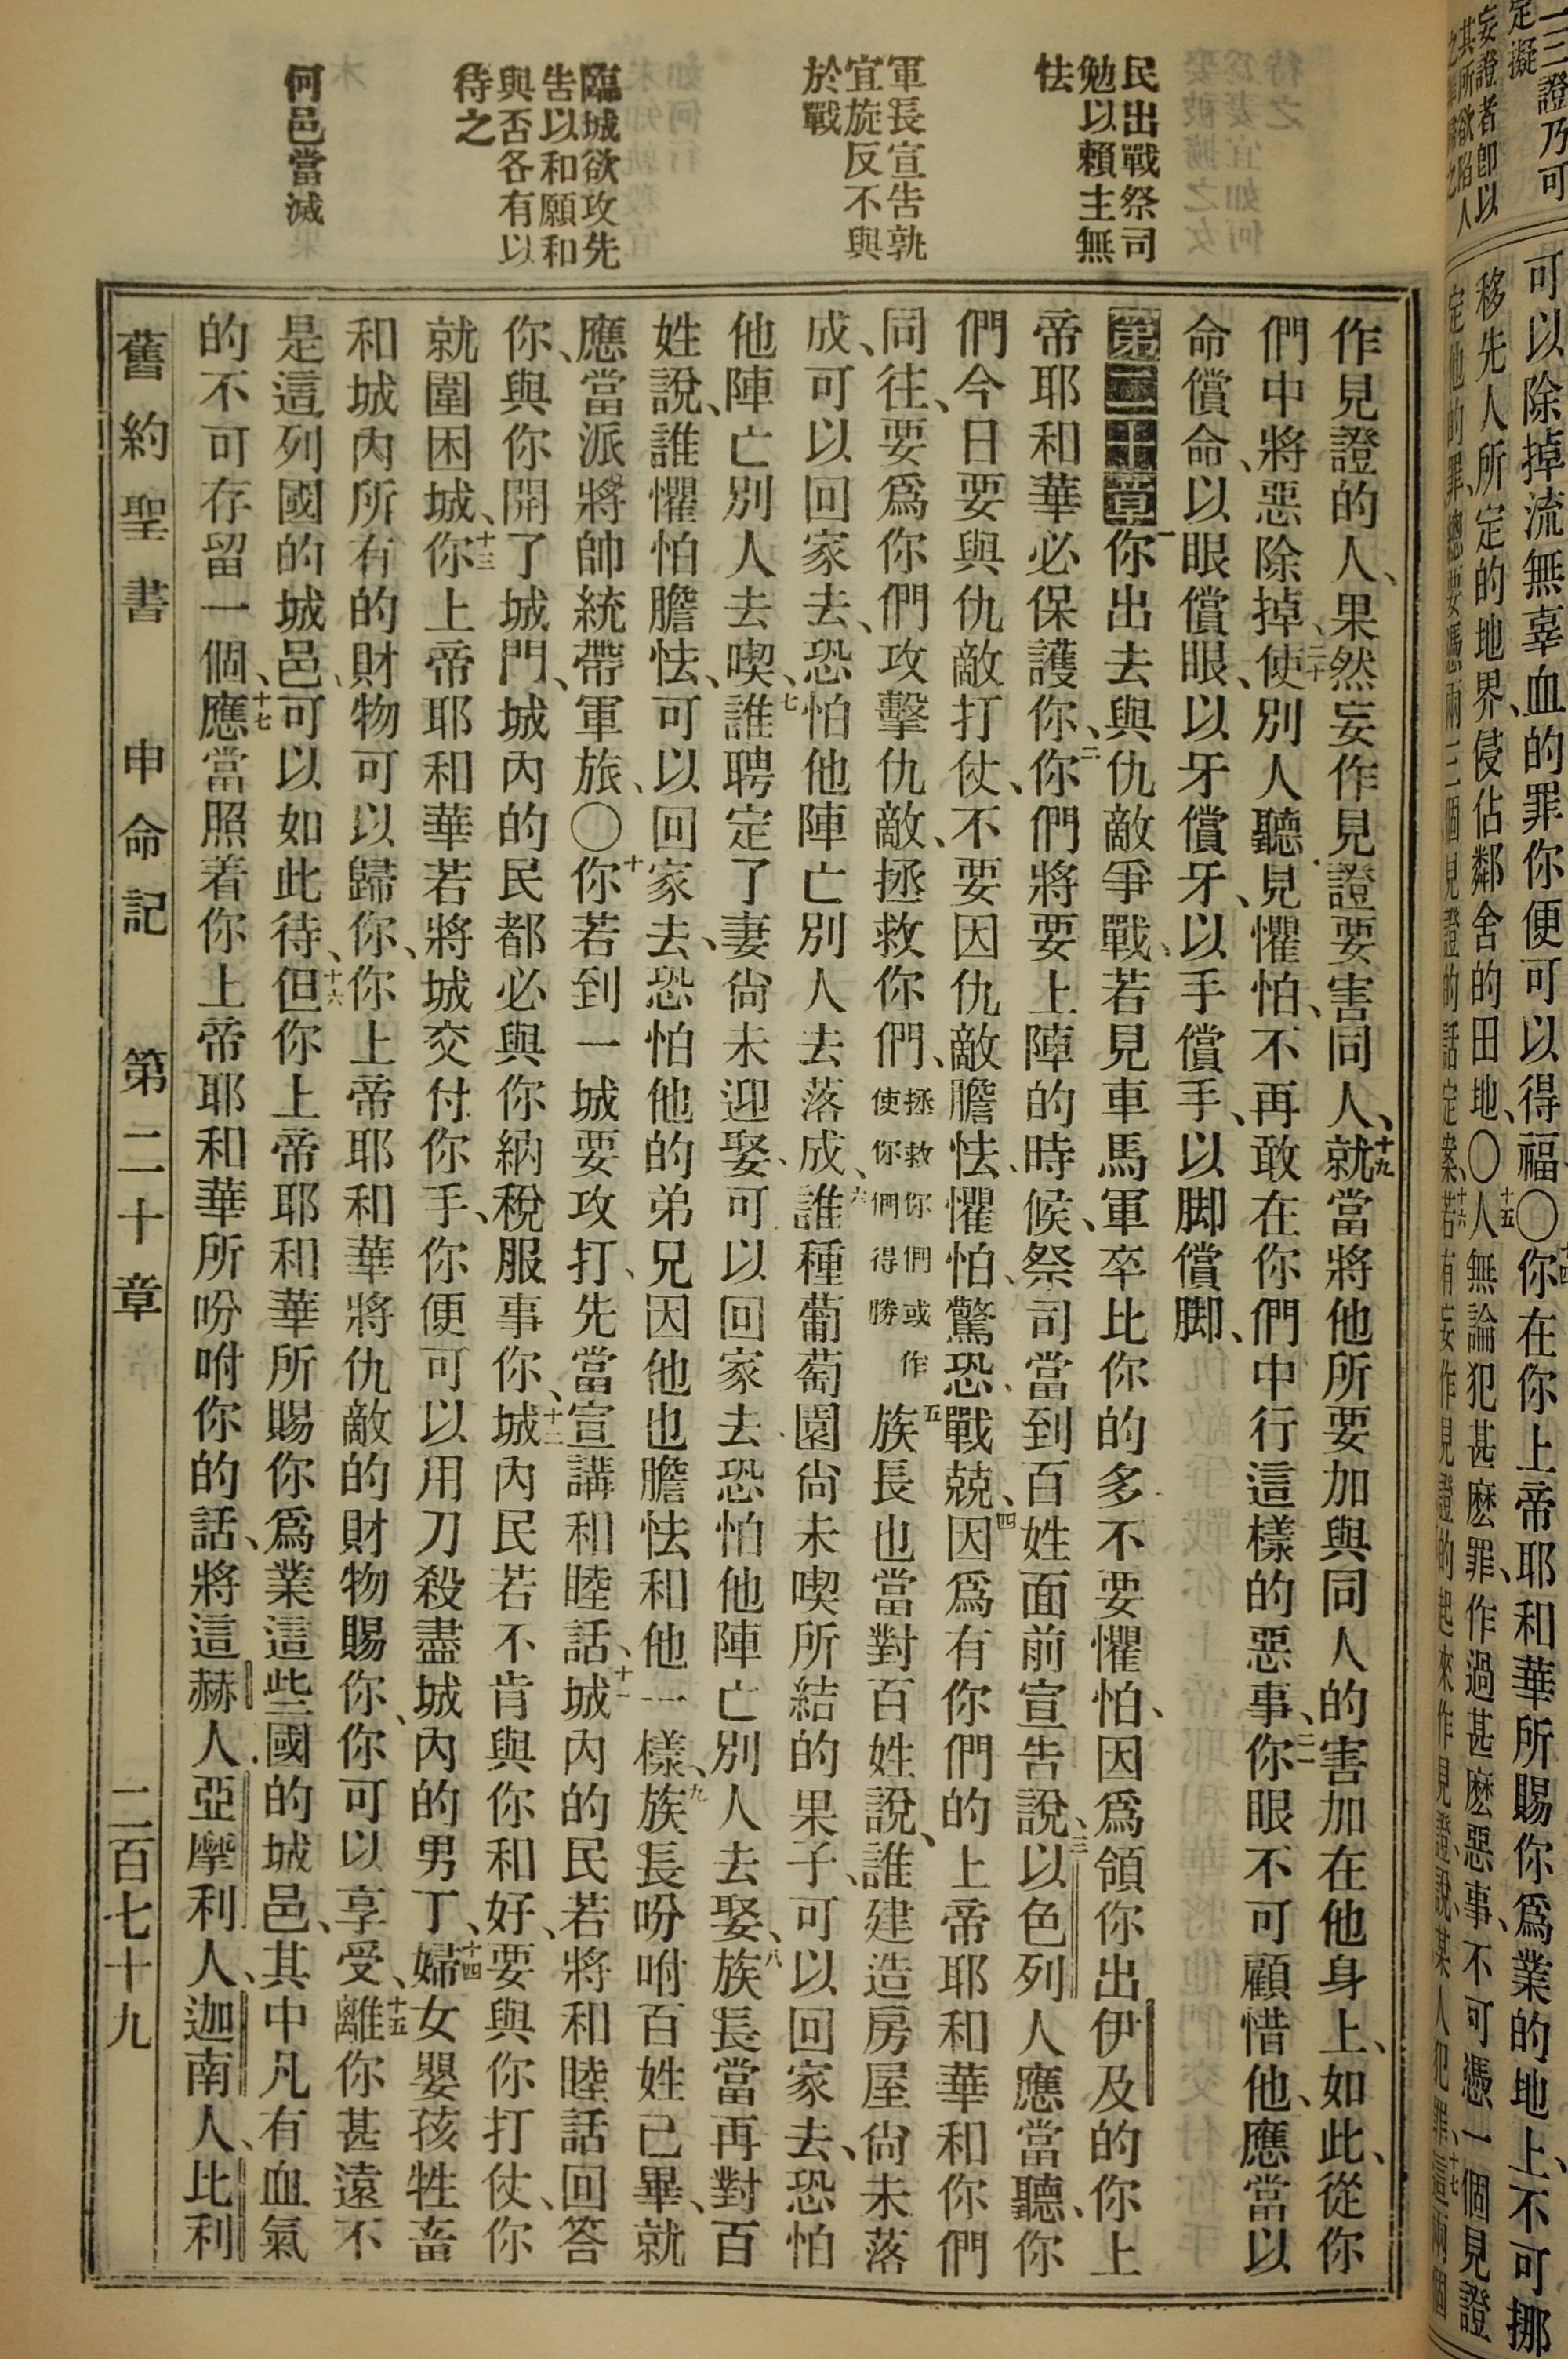 一二三證乃可
定擬
妄證者卽以
其所欲陷人
可以除掉流無辜血的罪你便可以得福、〇十四你在你上帝耶和華所賜你爲業的地上、不可挪
移先人所定的地界、侵佔鄰舍的田地、〇十五人無論犯甚麽罪、作過甚麽惡事、不可憑一個見證
定他的罪、總要憑兩三個見證的話定案、十六若有妄作見證的起來作見證說、某人犯罪、十七這兩個
民出戰祭司
勉以賴主無
怯
軍長宣告孰
宜旋反不與
於戰
臨城欲攻先
告以和願和
與否各有以
待之
何邑當滅
作見證的人、果然妄作見證要害同人、十九就當將他所要加與同人的害加在他身上、如此、從你
們中將惡除掉、二十使別人聽見懼怕、不再敢在你們中行這樣的惡事、二一你眼不可顧惜他、應當以
命償命、以眼償眼、以牙償牙、以手償手、以脚償脚、
第二十章一你出去與仇敵爭戰、若見車馬軍卒比你的多不要懼怕、因爲領你出伊及的你上
帝耶和華必保護你、二你們將要上陣的時候、祭司當到百姓面前宣告說、三以色列人應當聽、你
們今日要與仇敵打仗、不要因仇敵膽怯、懼怕、驚恐、戰兢、四因爲有你們的上帝耶和華和你們
同往、要爲你們攻擊仇敵、拯救你們、拯救你們或作使你們得勝五族長也當對百姓說、誰建造房屋尙未落
成、可以回家去、恐怕他陣亡別人去落成、六誰種葡萄園尙未喫所結的果子、可以回家去、恐怕
他陣亡別人去喫、七誰聘定了妻尙未迎娶、可以回家去恐怕他陣亡別人去娶、八族長當再對百
姓說、誰懼怕膽怯、可以回家去、恐怕他的弟兄因他也膽怯和他一樣、九族長吩咐百姓已畢、就
應當派將帥統帶軍旅、〇十你若到一城要攻打、先當宣講和睦話、十一城內的民若將和睦話回答
你、與你開了城門、城內的民都必與你納稅服事你、十二城內民若不肯與你和好、要與你打仗、你
就圍困城、十三你上帝耶和華若將城交付你手、你便可以用刀殺盡城內的男丁、十四婦女嬰孩牲畜
和城內所有的財物可以歸你、你上帝耶和華將仇敵的財物賜你、你可以享受、十五離你甚遠不
是這列國的城邑、可以如此待、十六但你上帝耶和華所賜你爲業這些國的城邑、其中凡有血氣
的不可存留一個、十七應當照着你上帝耶和華所吩咐你的話、將這赫人、亞摩利人、迦南人、比利
舊約聖書 申命記 第二十章 二百七十九